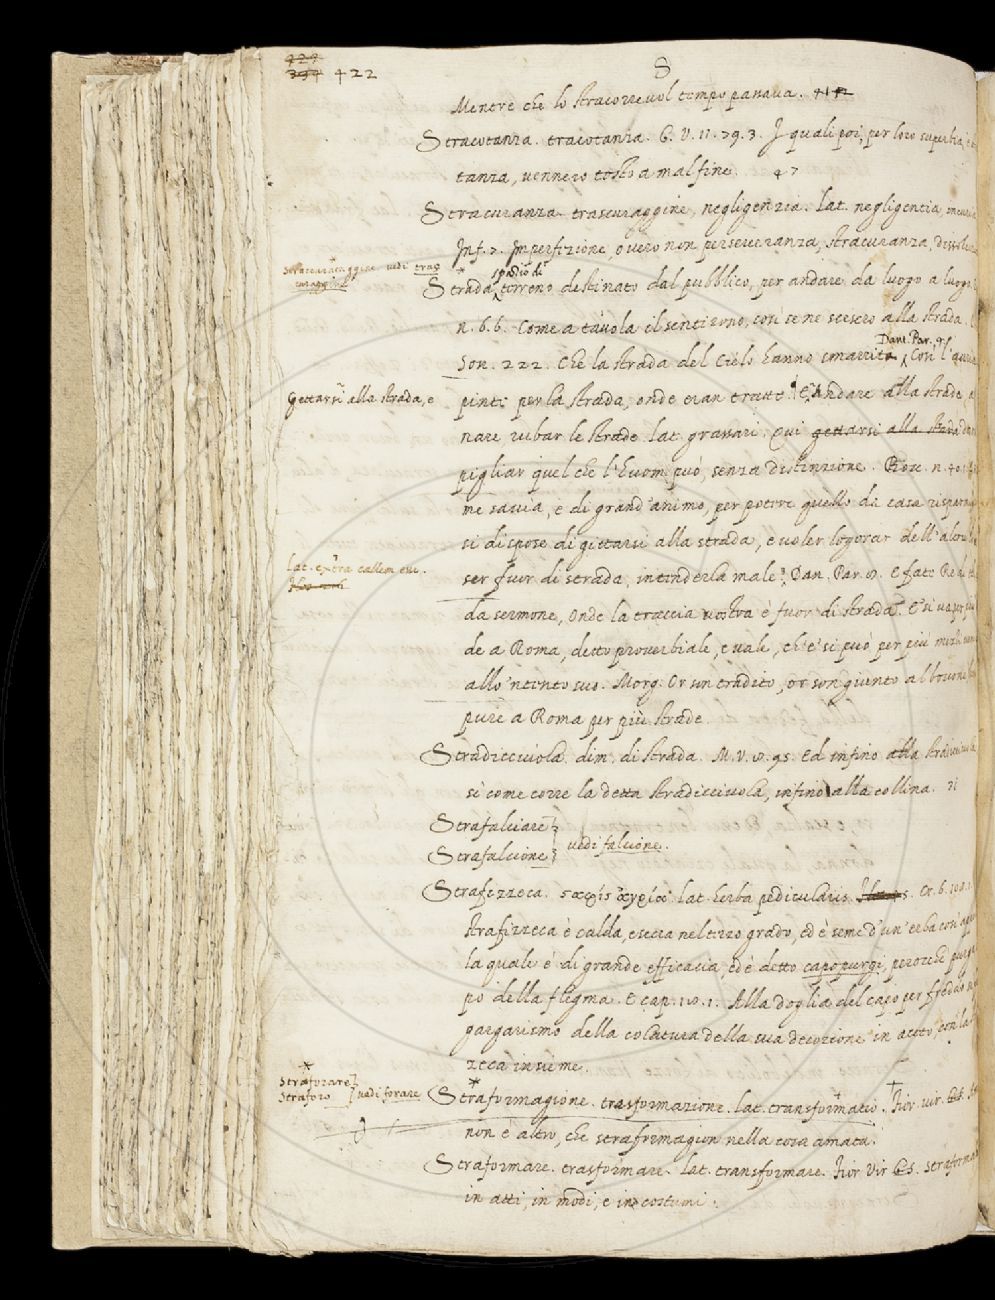 429
394 422
S
Mentre che lo stracorrevol tempo passava. 412
Stracotanza. tracotanza. G. V. 11. 79. 3. I quali poi, per loro superbia,
tanza, vennero tosto a mal fine. 47
Stracuranza. trascuraggine, negligenzia. Lat. negligentia,
Inf. 7. Imperfezione, overo non perseveranza, stracuranza,
stracurataggine vedi tras
curaggine
spazio di
Strada, terreno destinato dal pubblico, per andare da luogo a luogo.
n. 6. 6. Come a tavola il sentirono, così se ne scesero alla strada.
Dant. Par. 8.
Son. 222. Che la strada del Cielo hanno smarrita, Così l'
Gettarsi alla strada, e
pinti per la strada, onde eran tratti. E Andare alla strada,
nare rubar le strade. Lat. grassari. Qui gettarsi alla strada
pigliar quel che l'huom può, senza distinzione. Bocc. n.
me savia, e di grand'animo, per potere quello da casa
si dispose di gittarsi alla strada, e voler logorar dell'
Lat. extra callem
ser fuor di strada, intenderla male. Dan. Par. 8. E fate Re
da sermone, Onde la traccia vostra è fuor di strada. E si va per
de a Roma, detto proverbiale, e vale, ch'e' si può per più
allo 'ntento suo. Morg. Or son tradito, or son giunto al
pure a Roma per più strade.
Stradicciuola. dim. di strada. M. V. 8. 95. Ed infino alla
sì come corre la detta stradicciuola, infino alla collina. 71
Strafalciare
Strafalcione
vedi falcione.
Strafizzeca. σαφὶς ἀγρία. lat. herba pedicularis. Cr. 6.
strafizzeca è calda, e secca nel terzo grado, ed è seme d'un'erba così
la quale è di grande efficacia, ed è detto capo purgi, perocchè
po della flegma. E cap. 10. 1. Alla doglia del capo per freddo
gargarismo della colatura della sua decozione in aceto, con la
zeca insieme.
Straforare
Straforo
vedi forare
Straformagione. trasformazione. Lat. transformatio. Fior. vir.
non è altro, che straformagion nella cosa amata.
Straformare. trasformare. Lat. transformare. Fior. Vir.
in atti, in modi, e in costumi.